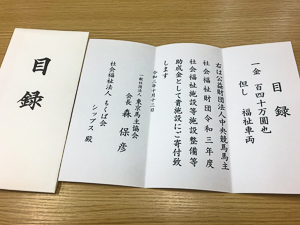 目録
目録
一金 百四十万圓也
但し 福祉車両
右は公益財団法人中央競馬馬主
社会福祉財団令和三年度
社会福祉施設等施設整備等
助成金として貴施設にご寄付致
します
令和三年十月十二日
一般社団法人 東京馬主協会
会長 森 保彦
社会福祉法人 もくば会
シップス 殿